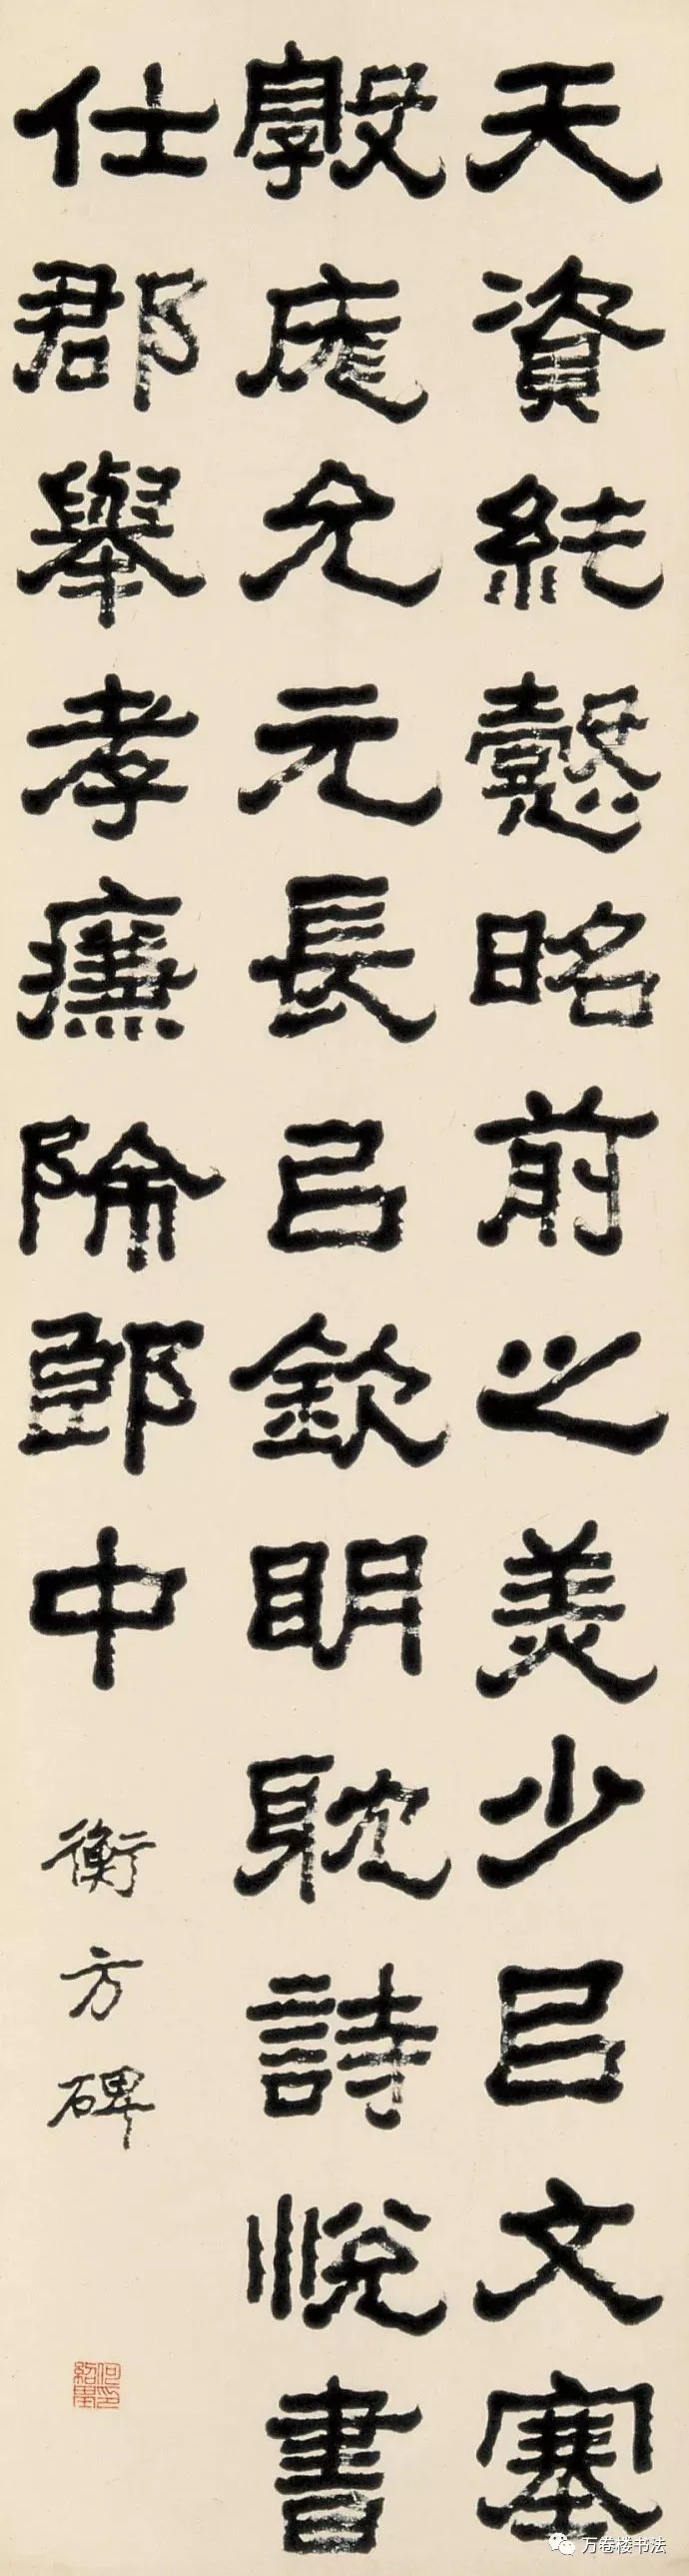 天資純懿昭前之美少㠯文塞
敦庬允元長㠯欽明耽詩悅書
仕郡舉孝廉除郎中
衡方碑
何紹基印
万卷楼书法